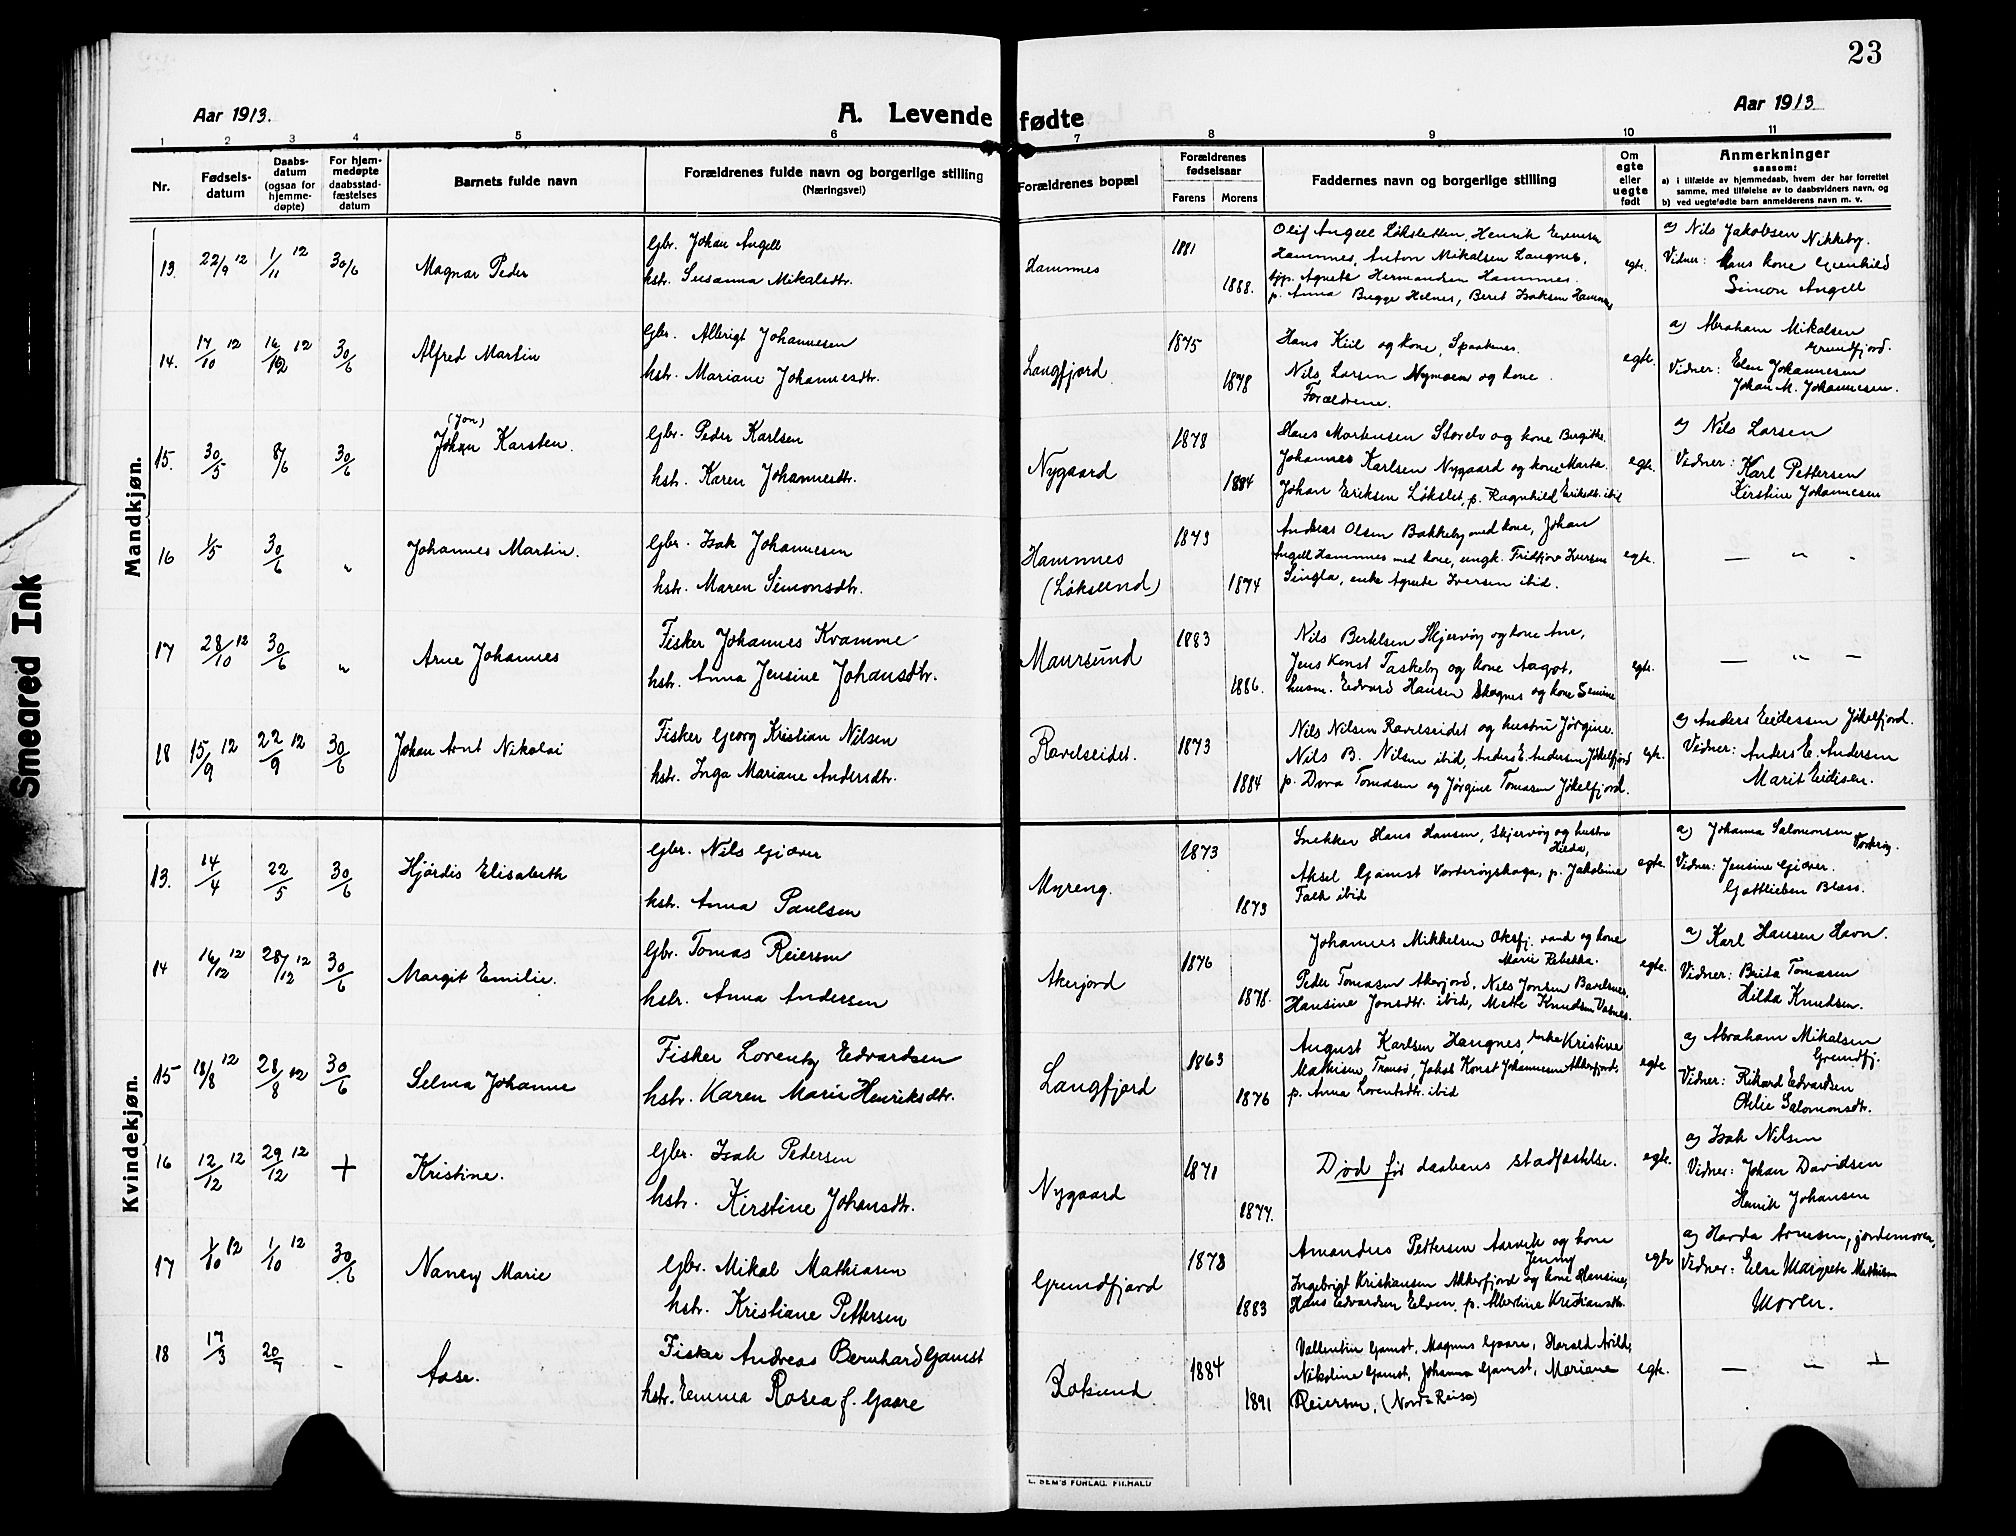 23
Aar 1913.
A. Levende fødte
Aar 1913
1 2 3 4 5 6 7 8 9 10 11
Nr.
Fødsels-datum
Daabs-datum (ogsaa for hjemme-døpte)
For hjem-medøpte daabsstad-fæstelses datum
Barnets fulde navn
Forældrenes fulde navn og borgerlige stilling
(Næringsvei)
Forældrenes bopæl
Forældrenes fødselsaar
Farens Morens
Faddernes navn og borgerlige stilling
Om egte eller uegte født
Anmerkninger
saasom:
a) i tilfælde av hjemmedaab, hvem der har forrettet
samme, med tilføielse av to daabsvidners navn, og
b) ved uegtefødte barn anmelderens navn m. v.
Mandkjøn.
13. 22/9 12 1/11 12 30/6 Magnar Peder
Gbr. Johan Angell
hstr. Susanna Mikalsdtr.
Hammes 1881 1888.
Olif Angell Løksletten, Henrik Evensen
Hammes, Anton Mikalsen Langnes,
gjp. Agnete Hermandsen Hammes.
p. Anna Bugge Helnes, Beret Isaksen Hammes
egte.
a) Nils Jakobsen Nikkeby.
Vidner: Hans kone Gunhild
Simon Angell
14. 17/10 12 16/12 12 30/6 Alfred Martin
Gbr. Albrigt Johannesen
hstr. Mariane Johannesdtr.
Langfjord 1875 1878
Hans Kiil og kone, Spaaknes.
Nils Larsen Nymoen og kone.
Forældrene.
egte.
a) Abraham Mikalsen
Grundfjord.
Vidner: Elen Johannesen
Johan M. Johannesen.
15. 30/5 8/6 30/6 (Jon)
Johan Karsten.
Gbr. Peder Karlsen
hstr. Karen Johannesdtr.
Nygaard 1878 1884
Hans Mortensen Storelv og kone Birgitte.
Johannes Karlsen Nygaard og kone Marta.
Johan Eriksen Løkslet, p. Ragnhild Eriksdtr. ibid
egte.
a) Nils Larsen
Vidner: Karl Pettersen
Kirstine Johannesen
16 1/5 30/6 " Johannes Martin.
Gbr. Isak Johannesen
hstr. Maren Simonsdtr.
Hammes
(Løksund)
1873 1874
Andreas Olsen Bakkeby med kone, Johan
Angell Hammes med kone, ungk. Fridtjov Iversen
Singla, enke Agnete Iversen ibid.
egte. — " -
17 28/10 12 30/6 " Arne Johannes
Fisker Johannes Kvamme
hstr. Anna Jensine Johansdtr.
Maursund 1883 1886.
Nils Bertelsen Skjervøy og kone Ane,
Jens Konst Taskeby og kone Aagot,
husm. Edvard Hansen Skognes og kone Semine
egte. — " —
18 15/9 12 22/9 12 30/6 Johan Arnt Nikolai
Fisker Georg Kristian Nilsen
hstr. Inga Mariane Andersdtr.
Ravelseidet. 1873 1884
Nils Nilsen Ravelseidet og hustru Jørgine.
Nils B. Nilsen ibid, Anders E. Andersen Jøkelfjord
p. Dora Tomasen og Jørgine Tomasen Jøkelfjord.
egte.
a) Anders Eidessen Jøkelfjord.
Vidner: Anders E. Andersen
Marit Eidisen.
Kvindekjøn.
13. 14/4 22/5 30/6 Hjørdis Elisabeth
Gbr. Nils Giæver
hstr. Anna Paulsen
Myreng. 1873 1873
Snekker Hans Hansen, Skjervøy og hustru
Hilda,
Aksel Gamst Vorterøyskaga, p. Jakobine
Falk ibid
egte.
a) Johanna Salomonsen
Vorterøy.
Vidner: Jensine Giæver.
Gottlieben Blæss.
14 16/12 12 28/12 12 30/6 Margit Emilie.
Gbr. Tomas Reiersen
hstr. Anna Andersen
Akerjord 1876 1878.
Johannes Mikkelsen Oksfj. vand og kone
Marie Rebekka.
Peder Tomasen Akerjord, Nils Jonsen Bavelsnes,
Hansine Jonsdtr. ibid, Mette Knudsen Vasnes.
egte.
a) Karl Hansen Havn.
Vidner: Brita Tomasen
Hilda Knudsen.
15 18/8 12 28/8 12 30/6 Selma Johanne
Fisker Lorentz Edvardsen
hstr. Karen Marie Henriksdtr.
Langfjord 1863 1876
August Karlsen Haugnes, enke Kristine
Mathisen, Tromsø, Jakob Konst Johannesen Akkerfjord,
p. Anna Lorentsdtr. ibid
egte
a) Abraham Mikalsen
Grundfj.
Vidner: Rikard Edvardsen
Othelie Salomonsdtr.
16 12/12 12 29/12 12 + Kristine.
Gbr. Isak Pedersen
hstr. Kirstine Johansdtr.
Nygaard 1871 1877.
Død før daabens stadfæstelse.
egte.
a) Isak Nilsen
Vidner: Johan Davidsen
Henrik Johansen
17 1/10 12 1/10 12 30/6 Nancy Marie
Gbr. Mikal Mathiasen
hstr. Kristiane Pettersen
Grundfjord 1878 1883
Amandus Pettersen Aarvik og kone
Jenny
Ingebrigt Kristiansen Akkerfjord og kone Hansine,
Hans Edvardsen Elven, p. Albertine Kristiansdtr.
egte
a) Harda Arnesen, jordemoren,
Vidner: Else Margrete Mathisen
Moren.
18 17/3 20/7 - Aase.
Fisker Andreas Bernhard Gamst
hstr. Emma Rosea f. Gaare
Roksund. 1884 1891
Vallentin Gamst, Magnus Gaare, Harald Arild,
Nikoline Gamst, Johanna Gamst, Mariane
Reiersen, (Nord-Reisa)
egte. — " —
E. SEM'S FORLAG. FR.HALD
Smeared Ink